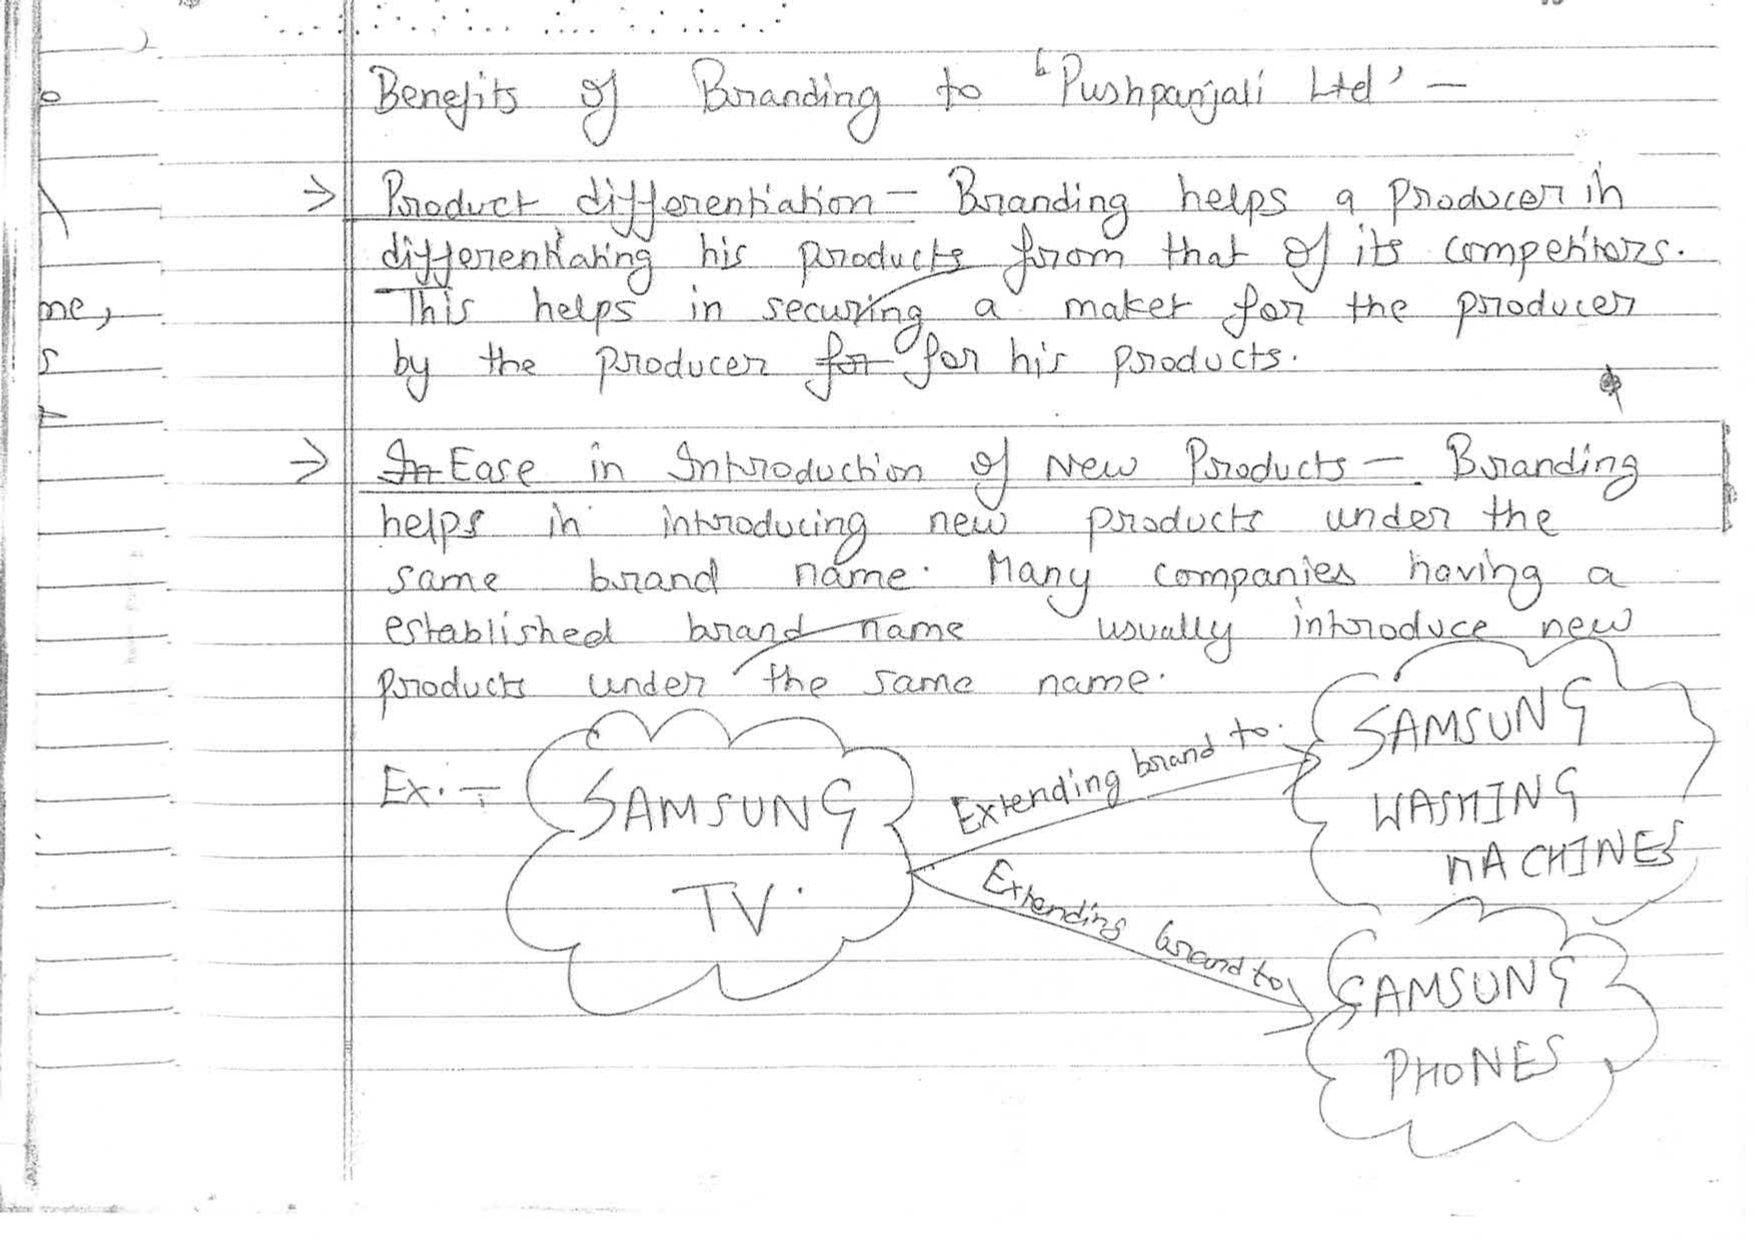 Benefits of Branding to 'Pushpanjali Ltd' -
→ Product differentiation - Branding helps a producer in
differentiating his products from that of its competitors.
This helps in securing a maket for the producer
by the producer for for his products.
→ In Ease in Introduction of New Products - Branding
helps in introducing new products under the
same brand name. Many companies having a
established brand name usually introduce new
products under the same name.
Ex. -
SAMSUNG
TV.
Extending brand to
SAMSUNG
WASHING
MACHINES
Extending brand to
SAMSUNG
PHONES
me,
s